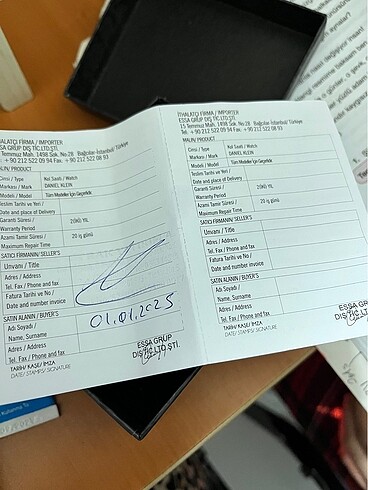 İTHALATÇI FİRMA / IMPORTER
ESSA GRUP DIŞ TİC LTD.ŞTİ.
15 Temmuz Mah. 1498 Sok. No.28 Bağcılar-İstanbul/ Türkiye
Tel. + 90 212 522 09 94 Fax. + 90 212 522 08 93
MALIN/ PRODUCT
Cinsi / Type Kol Saati / Watch
Markası / Mark DANIEL KLEIN
Modeli / Model Tüm Modeller İçin Geçerlidir.
Teslim Tarihi ve Yeri /
Date and place of Delivery
Garanti Süresi / 2(İKİ) YIL
Warranty Period
Azami Tamir Süresi / 20 iş günü
Maximum Repair Time
SATICI FİRMANIN/ SELLER'S
Unvanı / Title
Adres / Address
Tel. Fax / Phone and fax
Fatura Tarihi ve No /
Date and number invoice
SATIN ALANIN / BUYER'S 01.01.2025
Adı Soyadı /
Name, Surname
Adres / Address
Tel. Fax / Phone and fax
ESSA GRUP
DIŞ TİC LTD ŞTİ.
TARİH/ KAŞE/ İMZA
DATE/ STAMPS/ SIGNATURE
İTHALATÇI FİRMA / IMPORTER
ESSA GRUP DIŞ TİC LTD.ŞTİ.
15 Temmuz Mah. 1498 Sok. No.28 Bağcılar-İstanbul/ Türkiye
Tel. + 90 212 522 09 94 Fax. + 90 212 522 08 93
MALIN/ PRODUCT
Cinsi / Type Kol Saati / Watch
Markası / Mark DANIEL KLEIN
Modeli / Model Tüm Modeller İçin Geçerlidir.
Teslim Tarihi ve Yeri /
Date and place of Delivery
Garanti Süresi / 2(İKİ) YIL
Warranty Period
Azami Tamir Süresi / 20 iş günü
Maximum Repair Time
SATICI FİRMANIN/ SELLER'S
Unvanı / Title
Adres / Address
Tel. Fax / Phone and fax
Fatura Tarihi ve No /
Date and number invoice
SATIN ALANIN / BUYER'S
Adı Soyadı /
Name, Surname
Adres / Address
Tel. Fax / Phone and fax
ESSA GRUP
DIŞ TİC LTD ŞTİ.
TARİH/ KAŞE/ İMZA
DATE/ STAMPS/ SIGNATURE